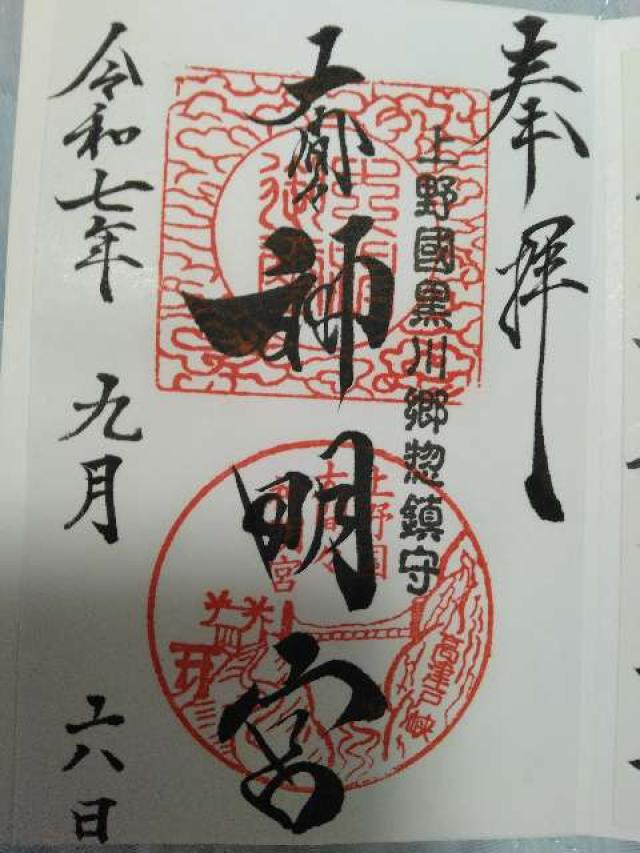 奉拝
上野國黒川郷惣鎮守
大間々神明宮
上野国
大間々
神明宮
高津戸峡
令和七年 九月 八日